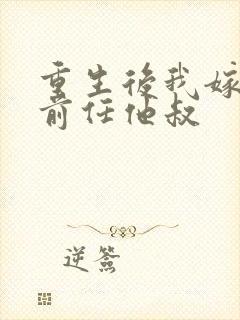 重生後我嫁
前任他叔
逆簽